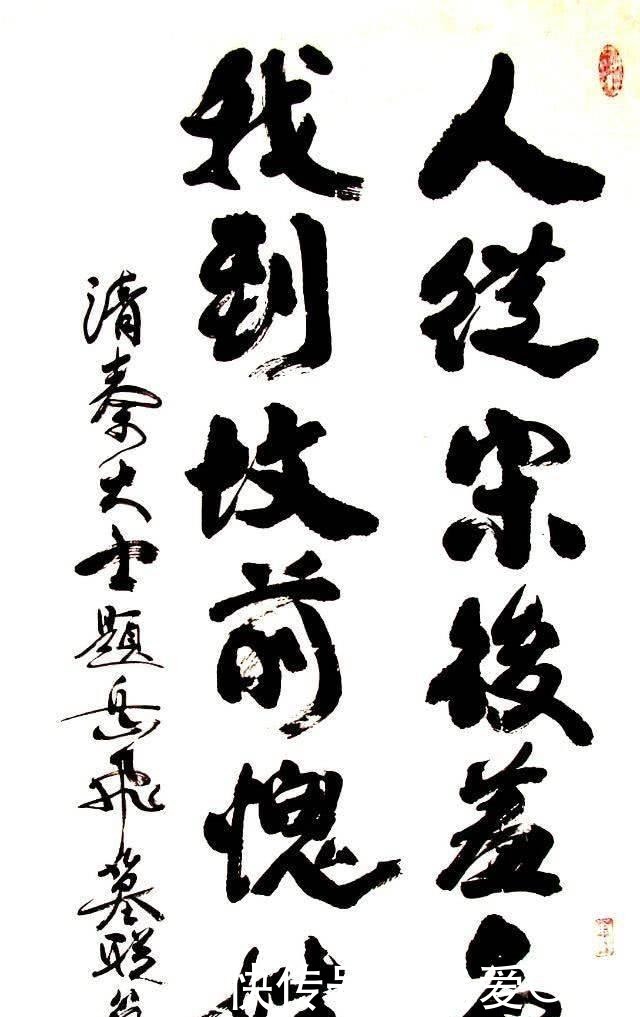 人從宋後羞
我到坟前愧
清秦大士題岳飛墓联
快传
爱